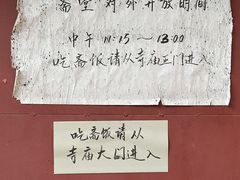 斋堂对外开放时间
中午 11:15～13:00
吃斋饭请从寺庙正门进入
吃斋饭请从
寺庙大门进入